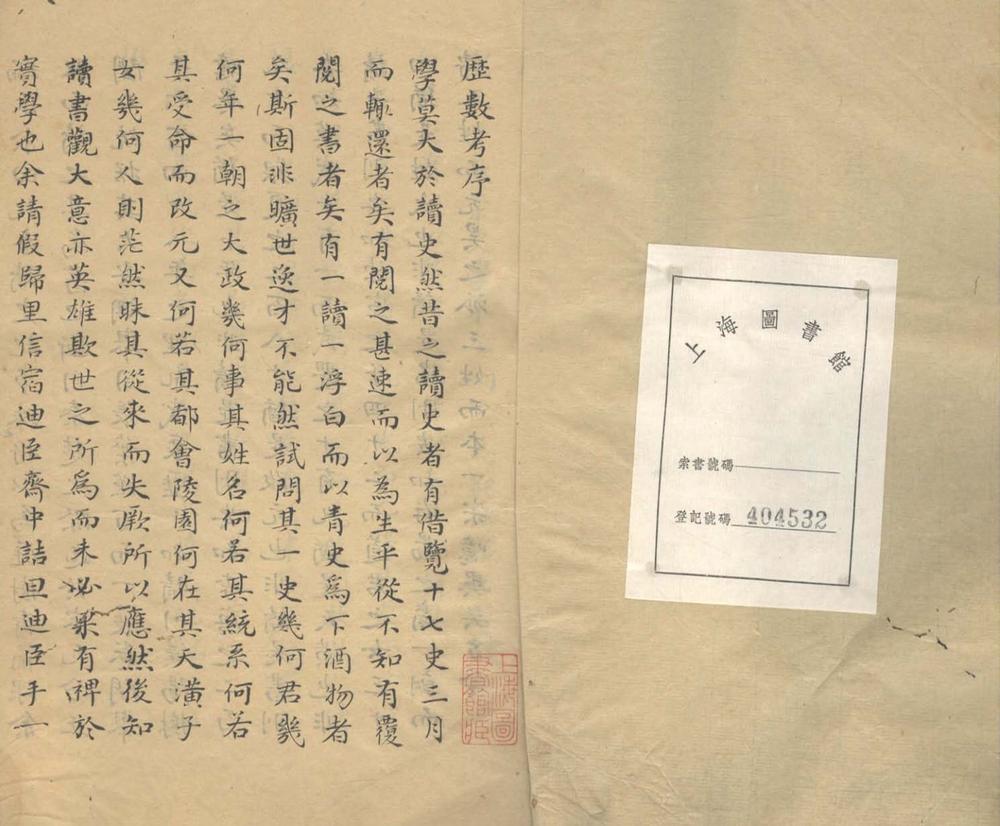 上海圖書館
索書號碼
登記號碼 404532
歷數考序
學莫大於讀史然昔之讀史者有借覽十七史三月
而輒還者矣有閱之甚速而以為生平從不知有覆
閱之書者矣有一讀一浮白而以青史為下酒物者
矣斯固非曠世逸才不能然試問其一史幾何君幾
何年一朝之大政幾何事其姓名何若其統系何若
其受命而改元又何若其都會陵園何在其天潢子
女幾何人則茫然昧其從來而失厥所以應然後知
讀書觀大意亦英雄欺世之所為而未必果有裨於
實學也余請假歸里信宿迪臣齋中詰旦迪臣手一
上海圖書館藏